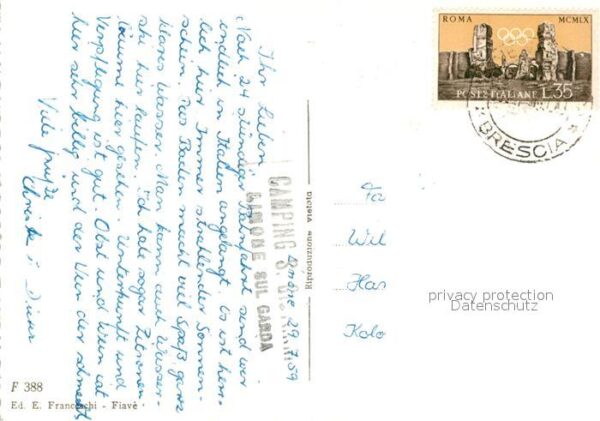 Limone 29.7.59
Ihr Lieben,
Nach 24 stündiger Bahnfahrt sind wir
endlich in Italien angelangt. Es ist herr-
lich hier. Immer strahlender Sonnen-
schein. Das Baden macht viel Spaß, ganz
klares Wasser. Man kann auch Wasser-
ski hier laufen. Ich habe sogar Zitronen-
bäume hier gesehen. Unterkunft und
Verpflegung ist gut. Obst und Wein ist
hier sehr billig und der Wein der schmeckt
Viele Grüße
Christa
CAMPING S.
LIMONE SUL GARDA
Riproduzione vietata
F 388
Ed. E. Franceschi - Fiavè
ROMA MCMLX
POSTE ITALIANE L.35
BRESCIA
Fa
Wil
Has
Kolo
privacy protection
Datenschutz